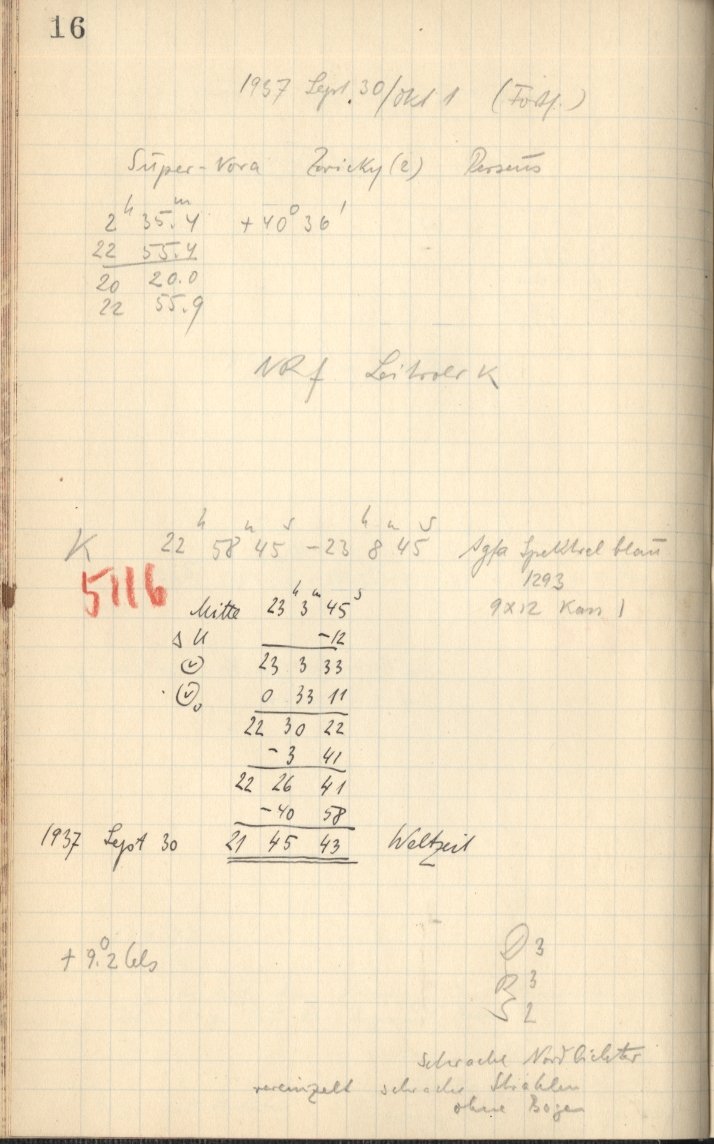 16
1937 Sept. 30/Okt 1 (Forts.)
Super-Nova Zwicky (2) Perseus
2ʰ 35.ᵐ4 +40° 36'
22 55.4
20 20.0
22 55.9
NRf Leitrohr K
K 22ʰ 58ᵐ 45ˢ – 23ʰ 8ᵐ 45ˢ Agfa Spektral blau
5116
1293
9x12 Kass 1
Mitte 23ʰ 3ᵐ 45ˢ
Δ U –12
23 3 33
0 33 11
22 30 22
–3 41
22 26 41
–40 58
1937 Sept 30 21 45 43 Weltzeit
+9.°2 Cels
D 3
R 3
S 2
schwache Nordlichter
vereinzelt schwache Strahlen
ohne Bogen